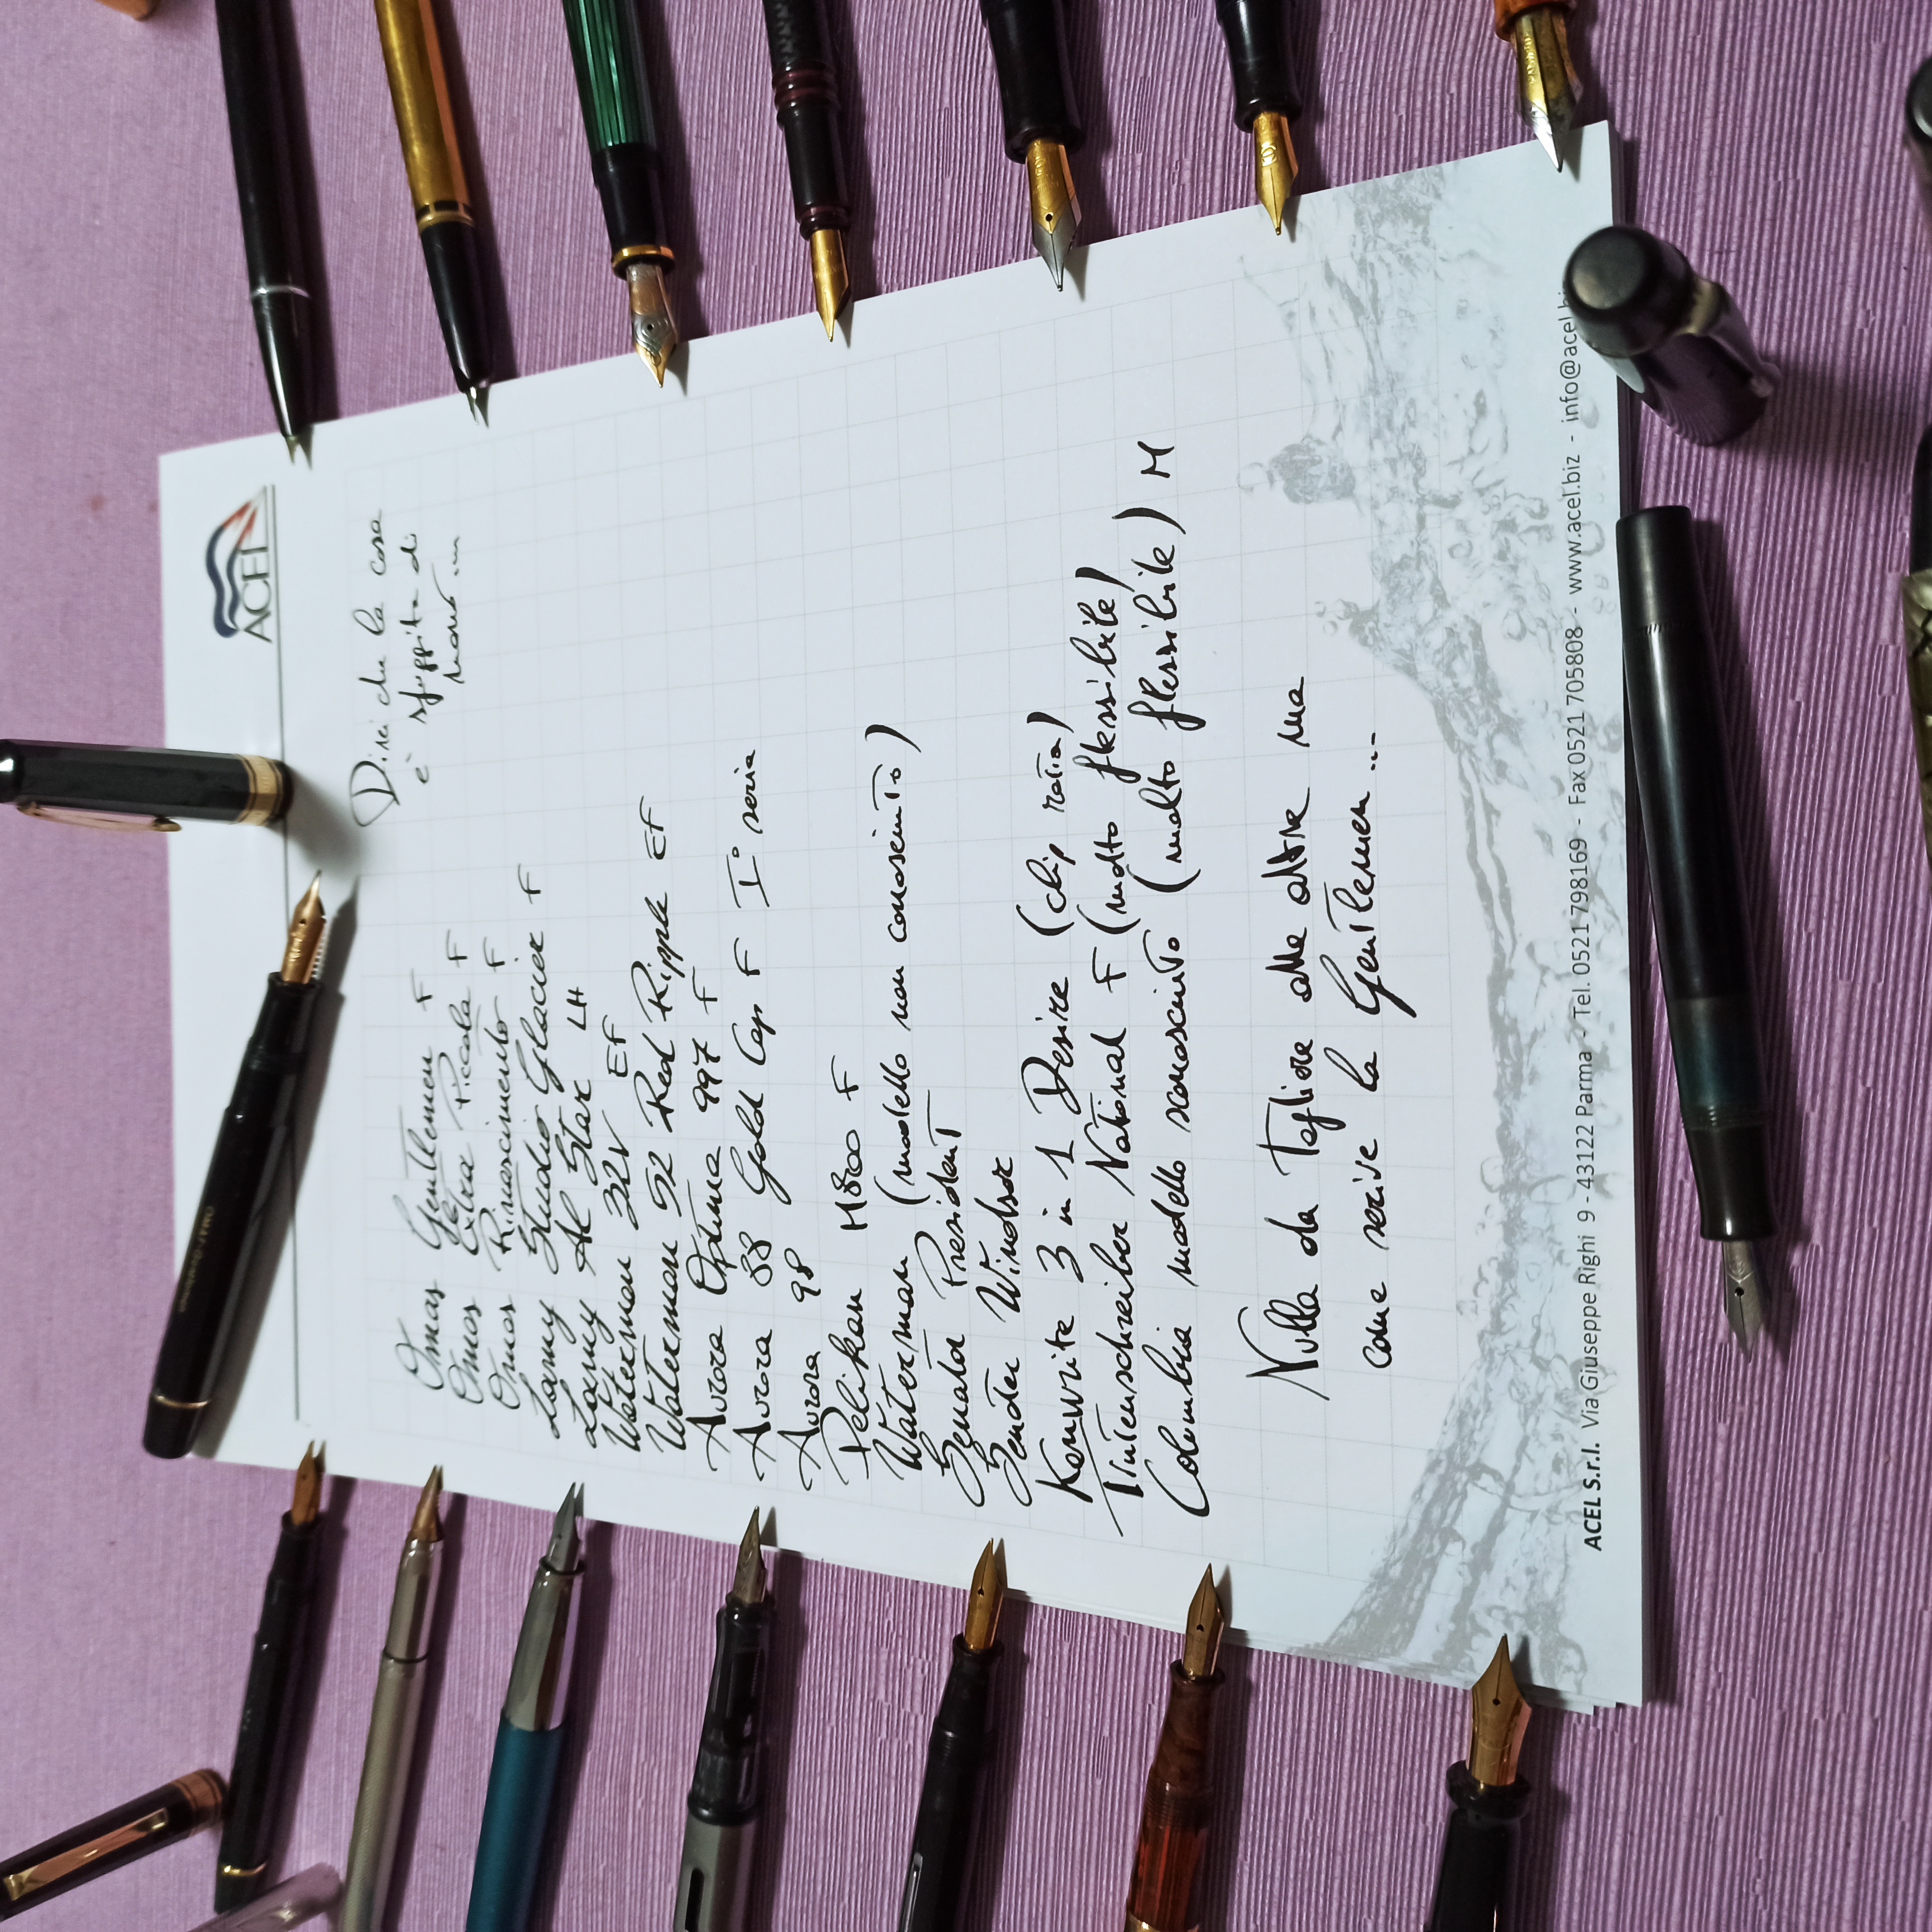 ACEL
Direi che la cosa
è sfuggita di
mano...
Omas Gentlemen F
Omas Extra Piccola F
Omas Rinascimento F
Lamy Studio Glacier F
Lamy Al Star LH
Waterman 32V EF
Waterman 52 Red Ripple EF
Aurora Optima 997 F
Aurora 88 Gold Cap F I° serie
Aurora 98
Pelikan M800 F
Waterman (modello non conosciuto)
Senator President
Senator Windsor
Kenwrite 3 in 1 Desire (clip rotta)
Tintenschreiber National F (molto flessibile)
Columbia modello sconosciuto (molto flessibile) M
Nulla da togliere alle altre ma
come scrive la Gentlemen...
ACEL S.r.l. Via Giuseppe Righi 9 - 43122 Parma - Tel. 0521 798169 - Fax 0521 705808 - www.acel.biz - info@acel.bi